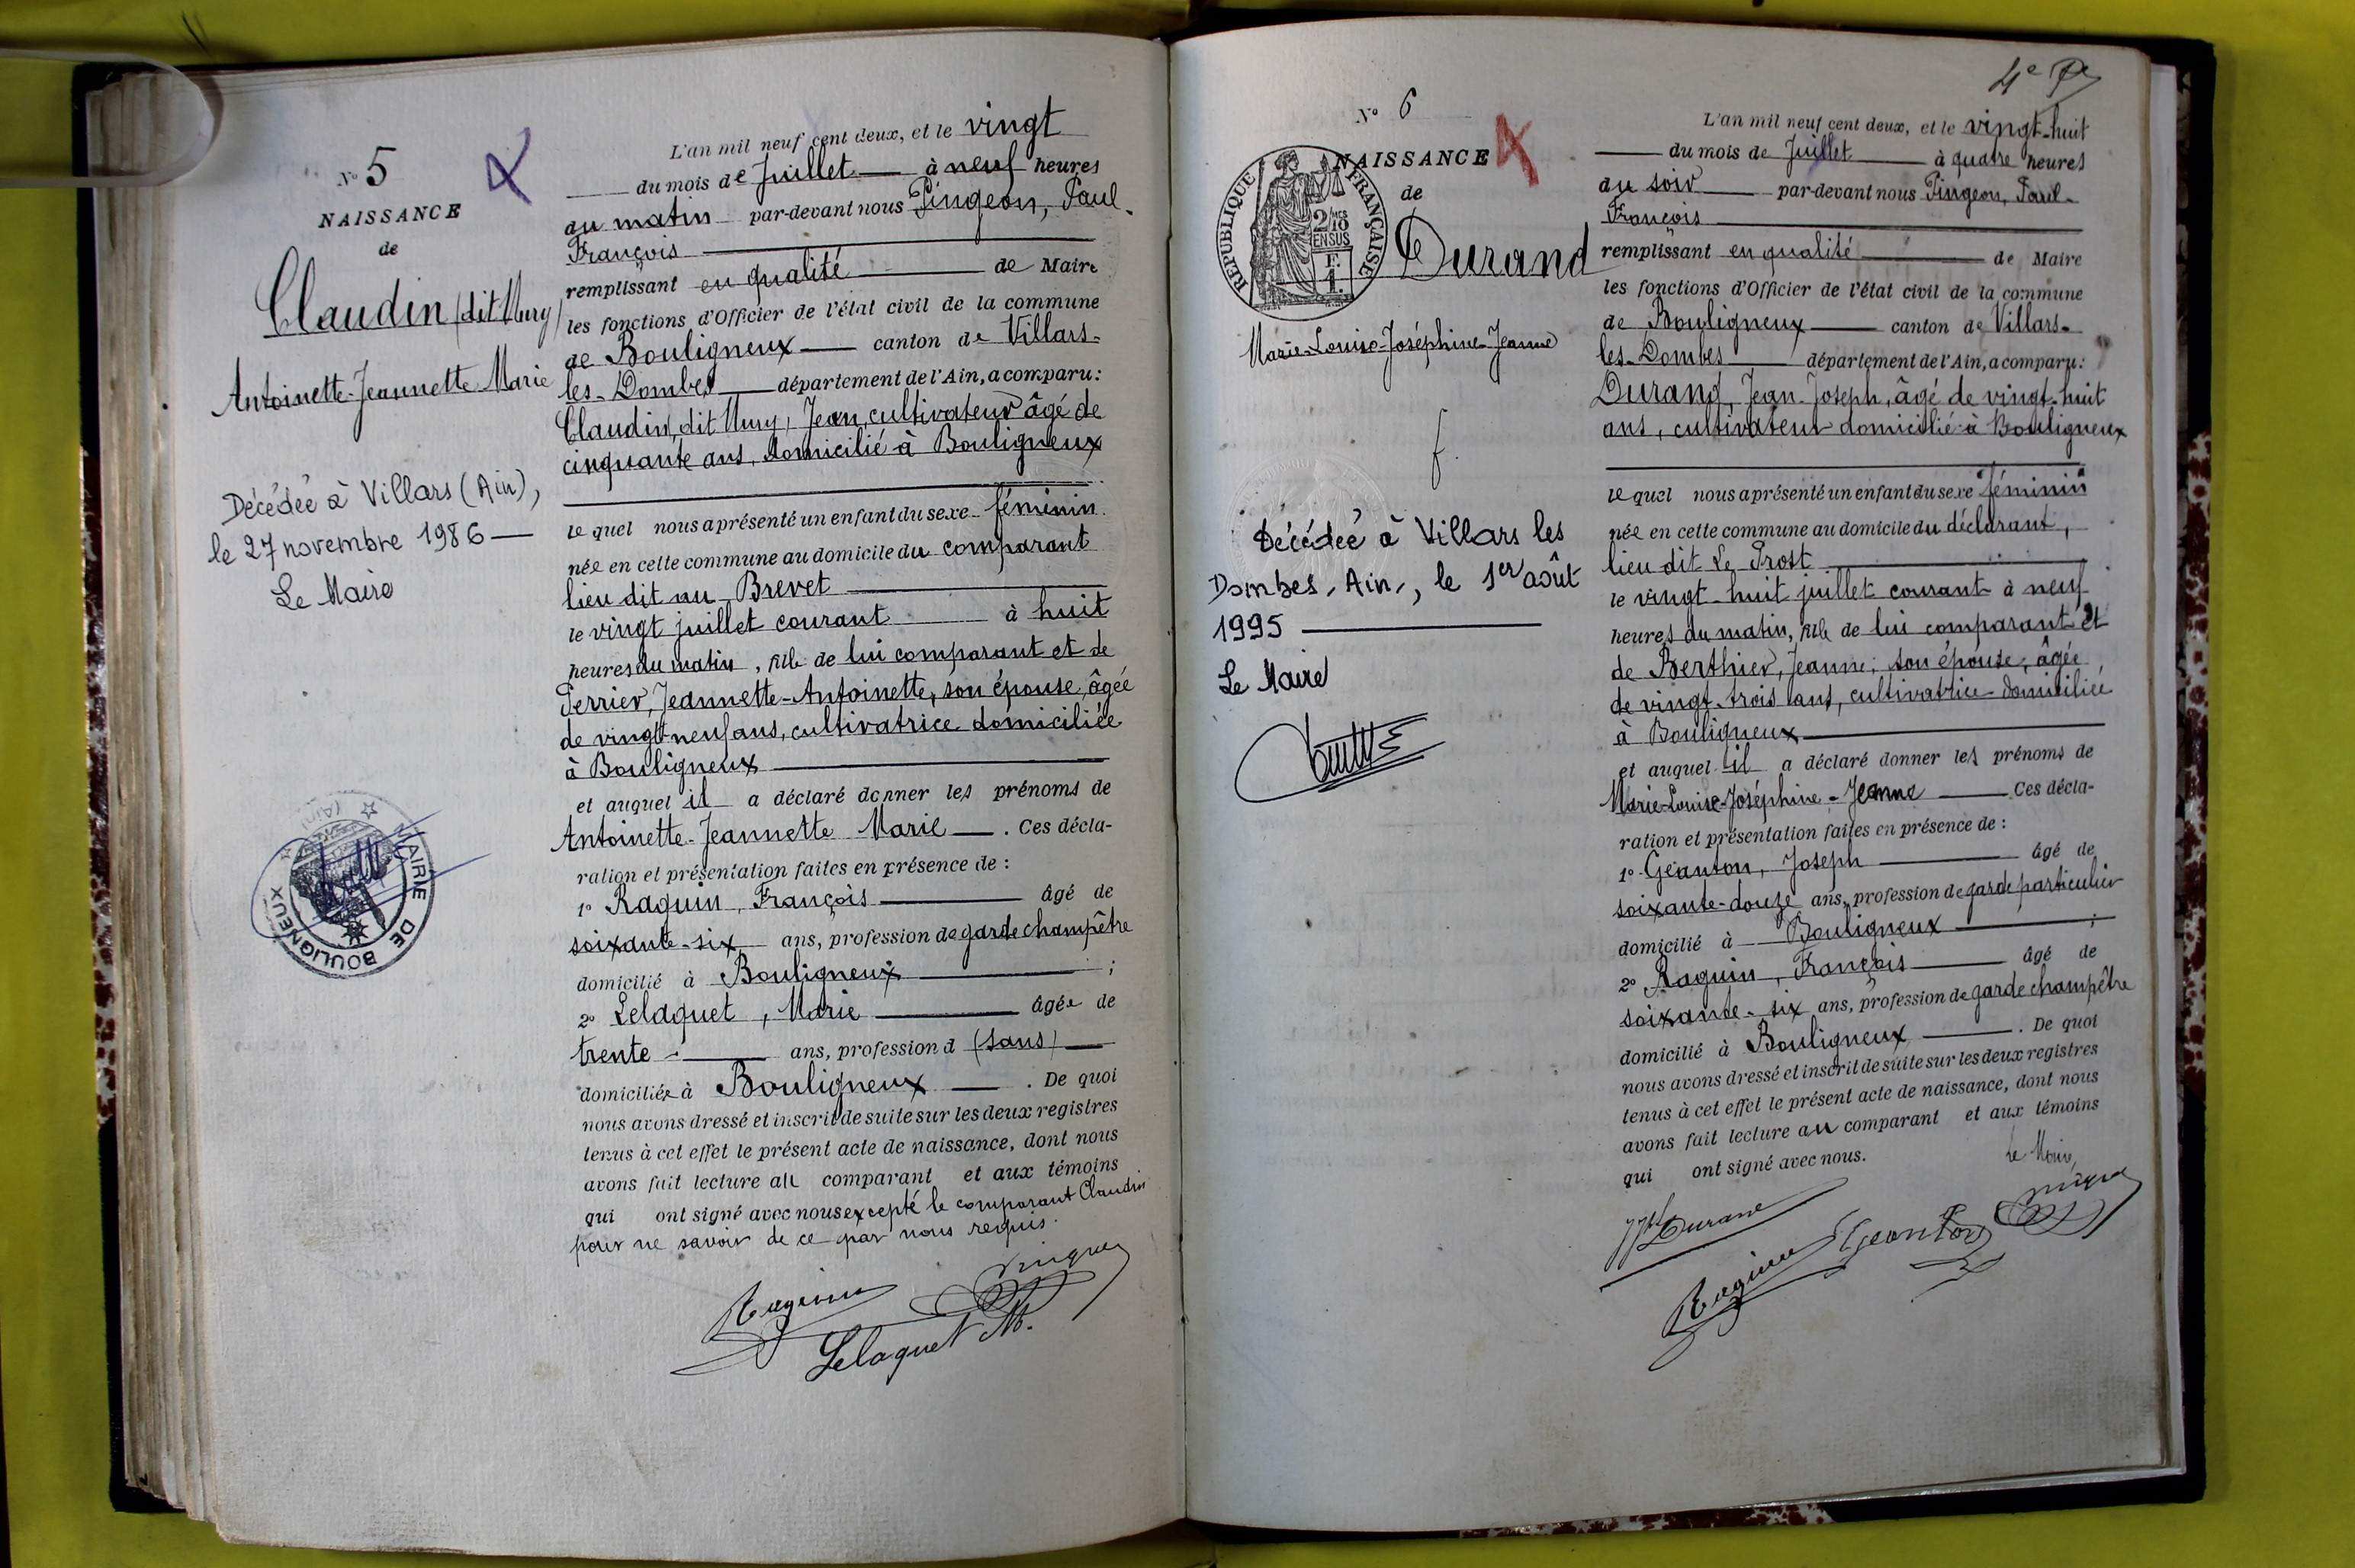 N° 5
NAISSANCE
de
Claudin (dit Mury)
Antoinette-Jeannette-Marie
Décédée à Villars (Ain),
le 27 novembre 1986 —
Le Maire
MAIRIE DE BOULIGNEUX
(AIN)
L'an mil neuf cent deux, et le vingt
du mois de Juillet — à neuf heures
du matin par-devant nous Pingeon, Paul-
François
remplissant en qualité — de Maire
les fonctions d'Officier de l'état civil de la commune
de Bouligneux — canton de Villars-
les-Dombes — département de l'Ain, a comparu :
Claudin, dit Mury, Jean, cultivateur âgé de
cinquante ans, domicilié à Bouligneux
lequel nous a présenté un enfant du sexe féminin.
née en cette commune au domicile du comparant
lieu dit au Brevet
le vingt juillet courant à huit
heures du matin, fille de lui comparant et de
Perrier, Jeannette-Antoinette, son épouse, âgée
de vingt-neuf ans, cultivatrice domiciliée
à Bouligneux
et auquel il a déclaré donner les prénoms de
Antoinette-Jeannette Marie — . Ces décla-
ration et présentation faites en présence de :
1° Raquin, François — âgé de
soixante-six ans, profession de garde champêtre
domicilié à Bouligneux — ;
2° Lelaquet, Marie — âgée de
trente — ans, profession d (sans) —
domiciliée à Bouligneux — . De quoi
nous avons dressé et inscrit de suite sur les deux registres
tenus à cet effet le présent acte de naissance, dont nous
avons fait lecture au comparant et aux témoins
qui ont signé avec nous excepté le comparant Claudin
pour ne savoir de ce par nous requis.
Raquin
Pingeon
Lelaquet M.
N° 6
NAISSANCE
de
RÉPUBLIQUE FRANÇAISE
2/10
EN SUS
Durand
Marie-Louise-Joséphine-Jeanne
f.
Décédée à Villars les
Dombes, Ain, le 1er août
1995
Le Maire
L'an mil neuf cent deux, et le vingt-huit
— du mois de Juillet — à quatre heures
du soir — par-devant nous Pingeon, Paul-
François
remplissant en qualité — de Maire
les fonctions d'Officier de l'état civil de la commune
de Bouligneux — canton de Villars-
les-Dombes — département de l'Ain, a comparu :
Durand, Jean-Joseph, âgé de vingt-huit
ans, cultivateur domicilié à Bouligneux
lequel nous a présenté un enfant du sexe féminin
née en cette commune au domicile du déclarant,
lieu dit Le Prost
le vingt-huit juillet courant à neuf
heures du matin, fille de lui comparant et
de Berthier, Jeanne, son épouse, âgée
de vingt-trois ans, cultivatrice domiciliée
à Bouligneux
et auquel il a déclaré donner les prénoms de
Marie-Louise-Joséphine-Jeanne — Ces décla-
ration et présentation faites en présence de :
1° Géanton, Joseph — âgé de
soixante-douze ans, profession de garde particulier
domicilié à Bouligneux — ;
2° Raquin, François — âgé de
soixante-six ans, profession de garde champêtre
domicilié à Bouligneux — . De quoi
nous avons dressé et inscrit de suite sur les deux registres
tenus à cet effet le présent acte de naissance, dont nous
avons fait lecture au comparant et aux témoins
qui ont signé avec nous.
Le Maire,
Durand
Raquin
Géanton
Pingeon